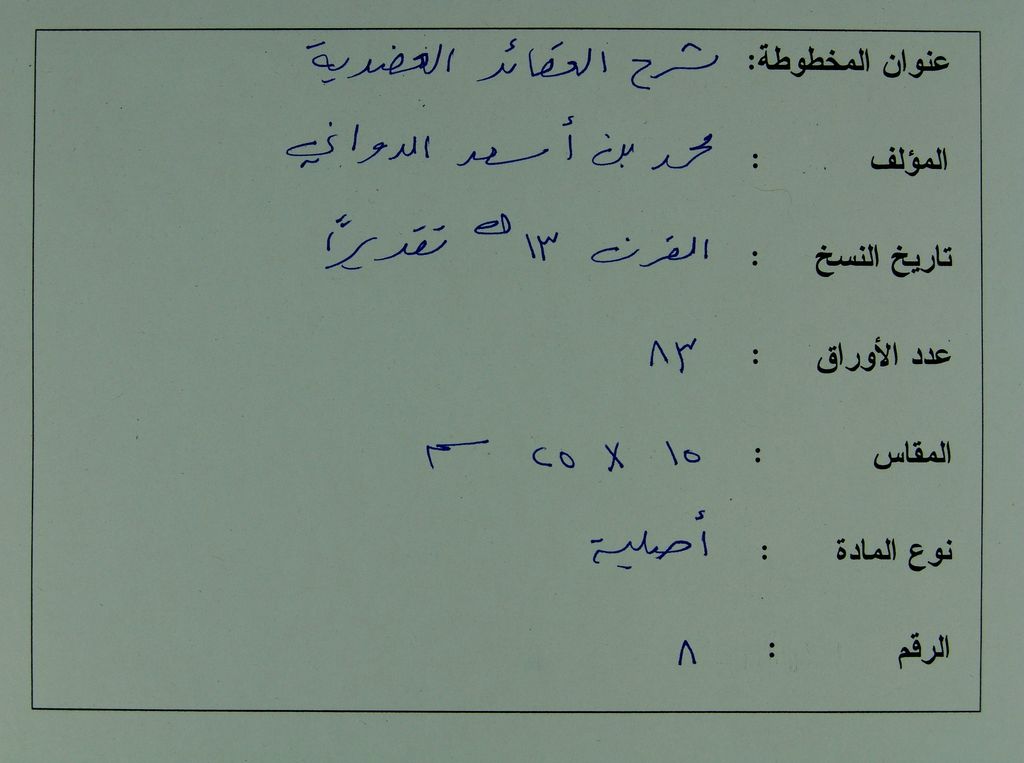 عنوان المخطوطة: شرح العقائد العضدية
المؤلف : محمد بن أسعد الدواني
تاريخ النسخ : القرن ١٣ هـ تقديرًا
عدد الأوراق : ٨٣
المقاس : ١٥ X ٢٥ سم
نوع المادة : أصلية
الرقم : ٨